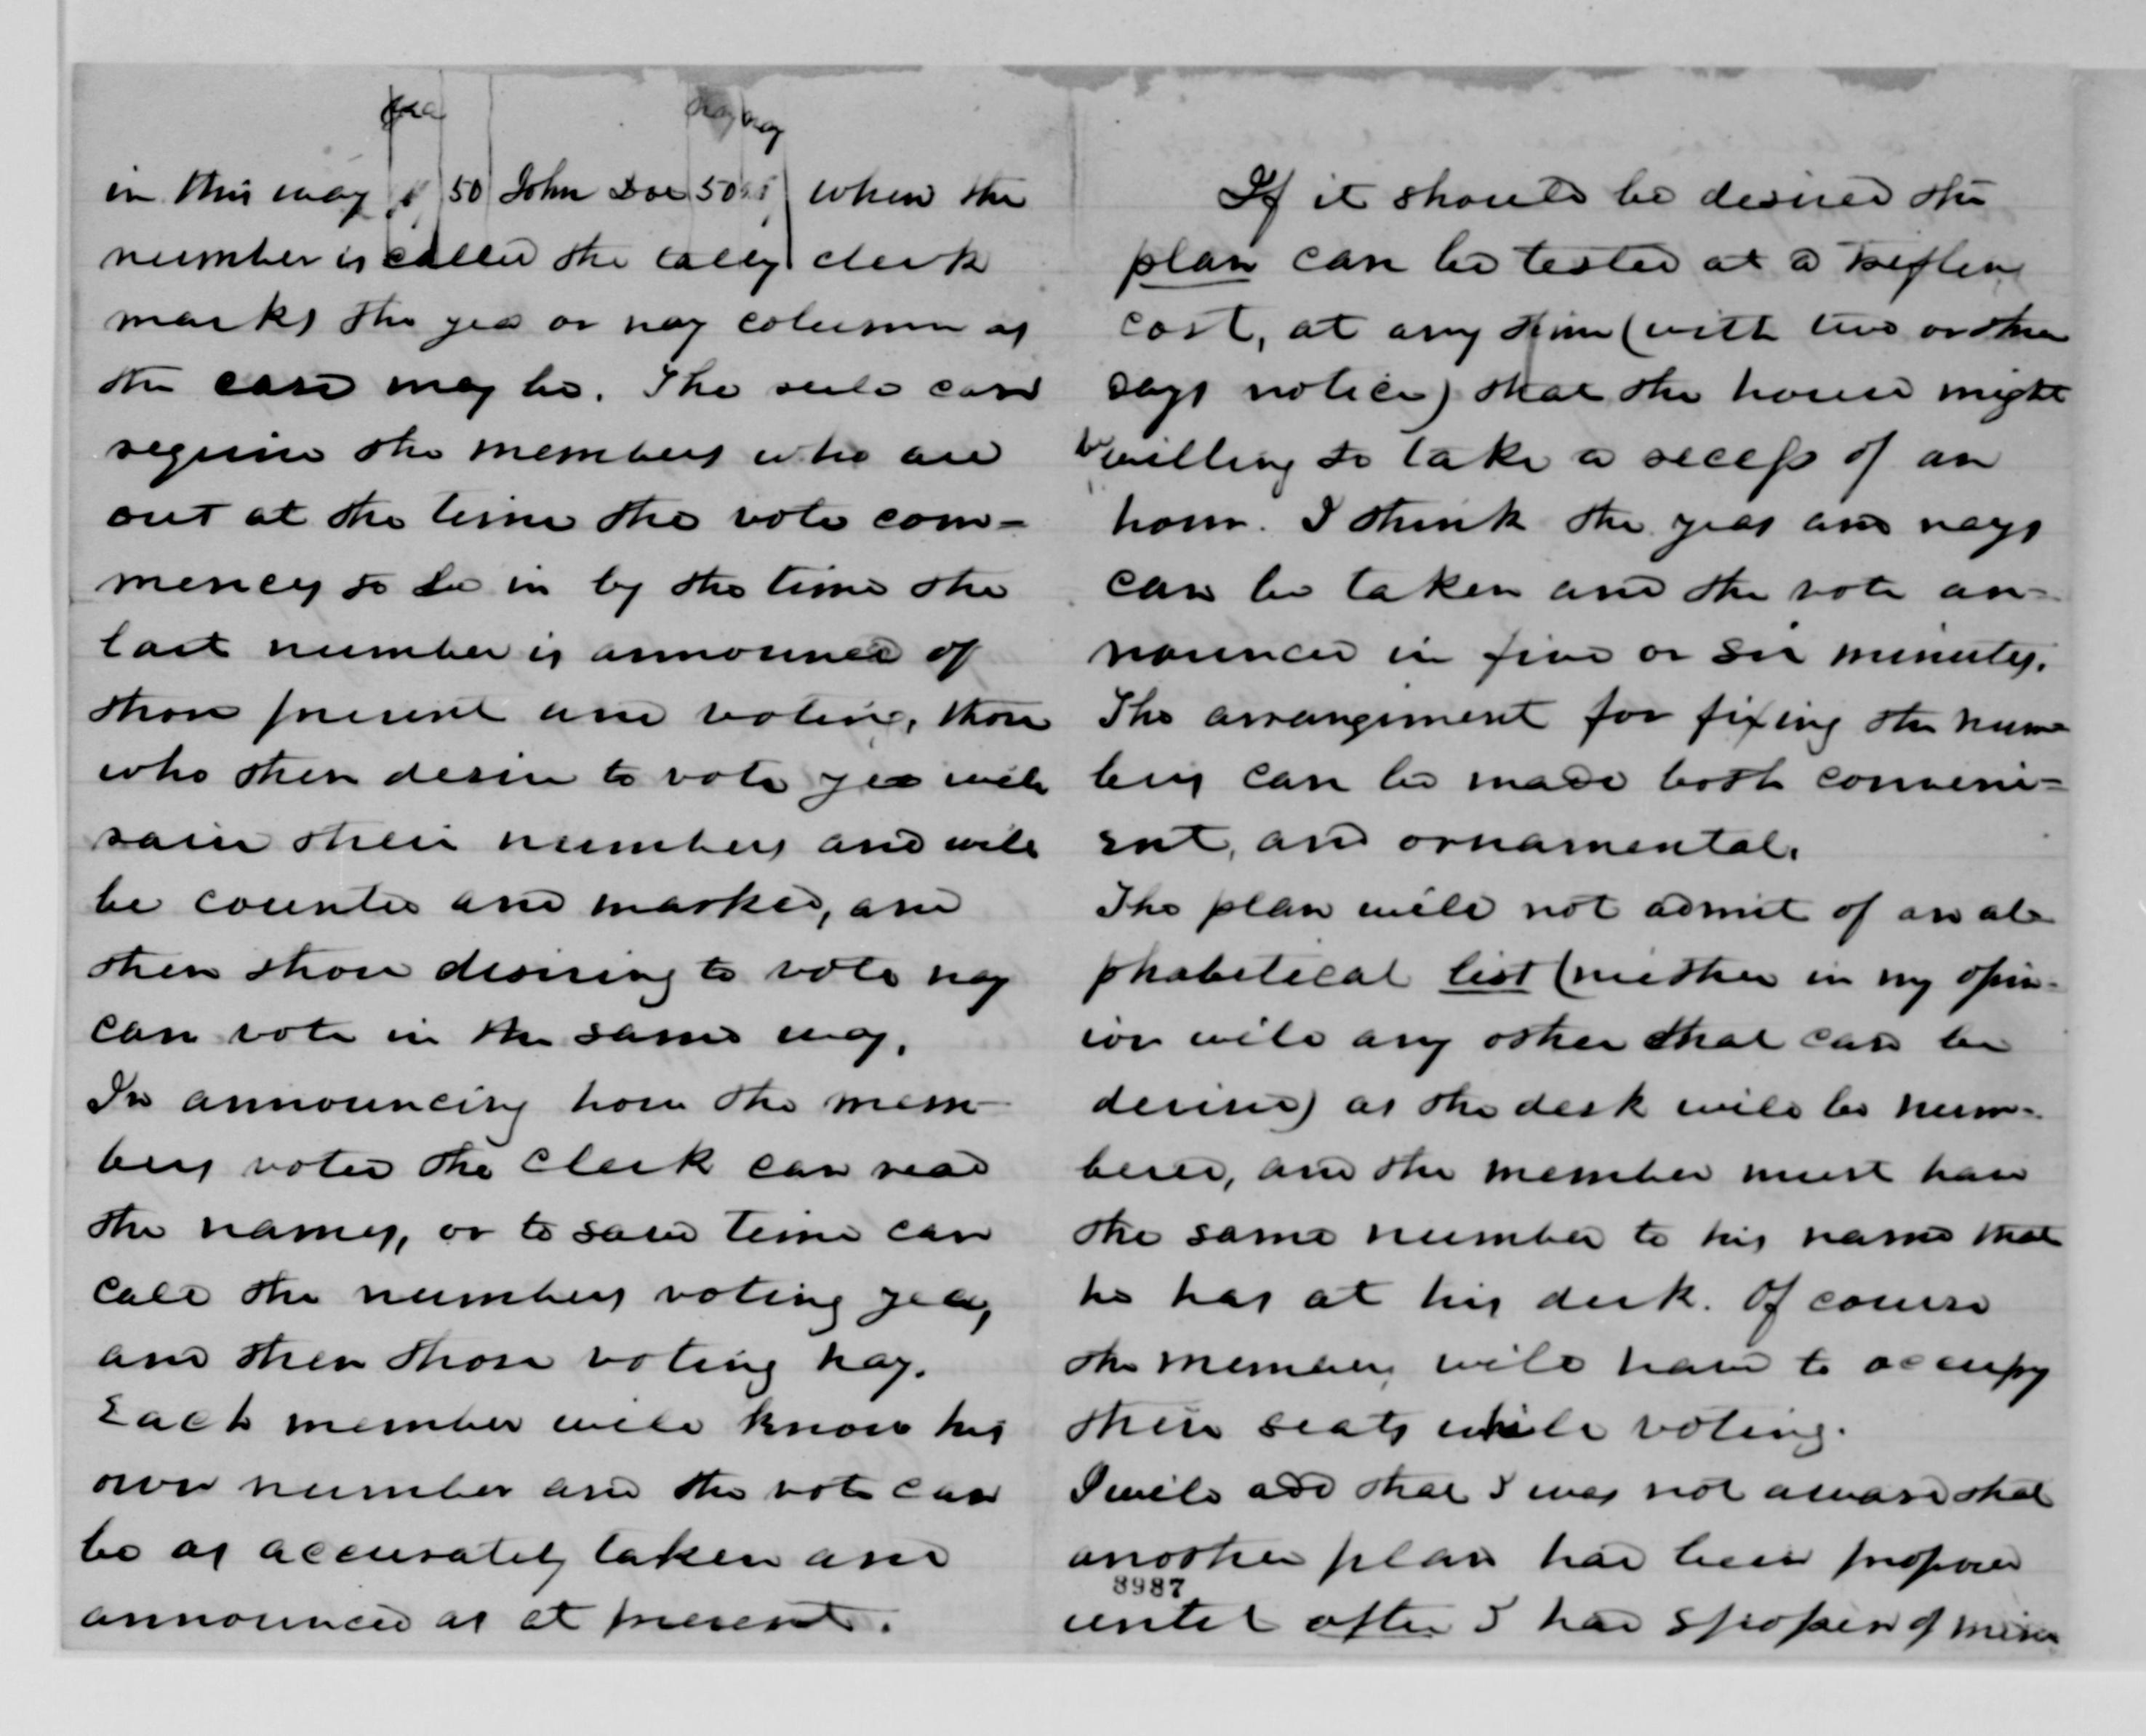 yea nay nay
in this way 50 John Doe 50 when the
number is called the tally clerk
marks the yea or nay column as
the case may be. The rule can
require the members who are
out at the time the vote com-
mences to be in by the time the
last number is announced of
those present and voting, those
who then desire to vote yea will
raise their numbers and will
be counted and marked, and
then those desiring to vote nay
can vote in the same way.
In announcing how the mem-
bers voted the clerk can read
the names, or to save time can
call the numbers voting yea,
and then those voting nay.
Each member will know his
own number and the vote can
be as accurately taken and
announced as at present.
If it should be desired the
plan can be tested at a trifling
cost, at any time (with two or three
days notice) that the house might
be willing to take a recess of an
hour. I think the yeas and nays
can be taken and the vote an-
nounced in five or six minutes.
The arrangement for fixing the num
bers can be made both conveni-
ent, and ornamental.
The plan will not admit of an al-
phabetical list (neither in my opin-
ion will any other that can be
devised) as the desk will be num-
bered, and the member must have
the same number to his name that
he has at his desk. Of course
the members will have to occupy
their seats while voting.
I will add that I was not aware that
another plan had been proposed
8987
until after I had spoken of mine